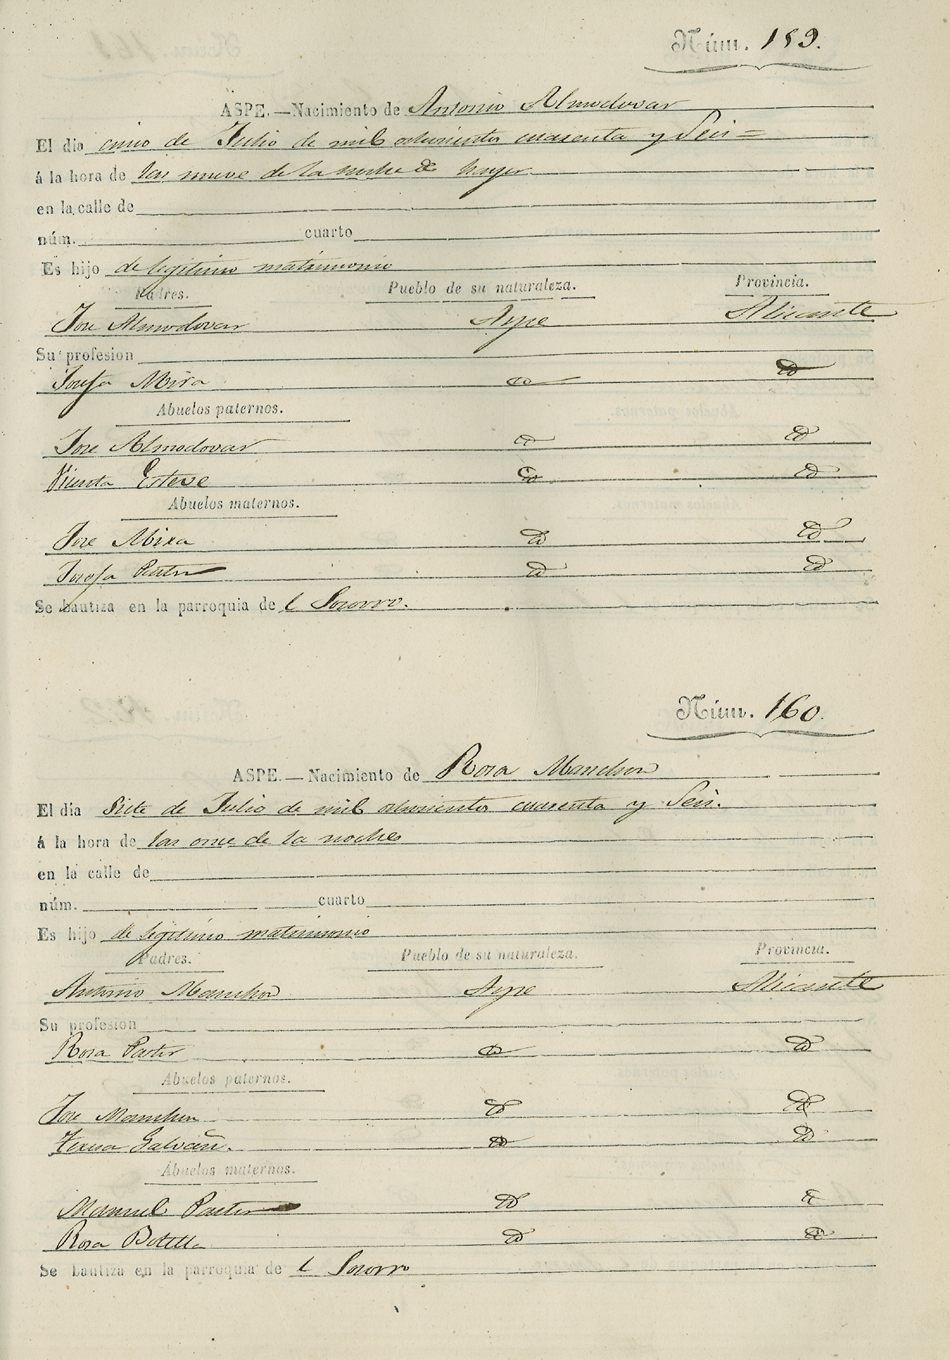 Núm. 159.
ASPE.—Nacimiento de Antonio Almodovar
El dio cinco de Julio de mil ochocientos cuarenta y Seis =
á la hora de las nueve de la noche de hayer
en la calle de
núm. cuarto
Es hijo de legitimo matrimonio
Padres. Pueblo de su naturaleza. Provincia.
Jose Almodovar Aspe Alicante
Su profesion
Josefa Mira id id
Abuelos paternos.
Jose Almodovar id id
Vicenta Esteve id id
Abuelos maternos.
Jose Mira id id
Josefa Pastor id id
Se bautiza en la parroquia de l Socorro.
Núm. 160.
ASPE.—Nacimiento de Rosa Manchon
El dia Siete de Julio de mil ochocientos cuarenta y Seis.
á la hora de las once de la noche
en la calle de
núm. cuarto
Es hijo de legitimo matrimonio
Padres. Pueblo de su naturaleza. Provincia.
Antonio Manchon Aspe Alicante
Su profesion
Rosa Pastor id id
Abuelos paternos.
Jose Manchon id id
Teresa Galvañ. id id
Abuelos maternos.
Manuel Pastor id id
Rosa Botella id id
Se bautiza en la parroquia de l Socorro